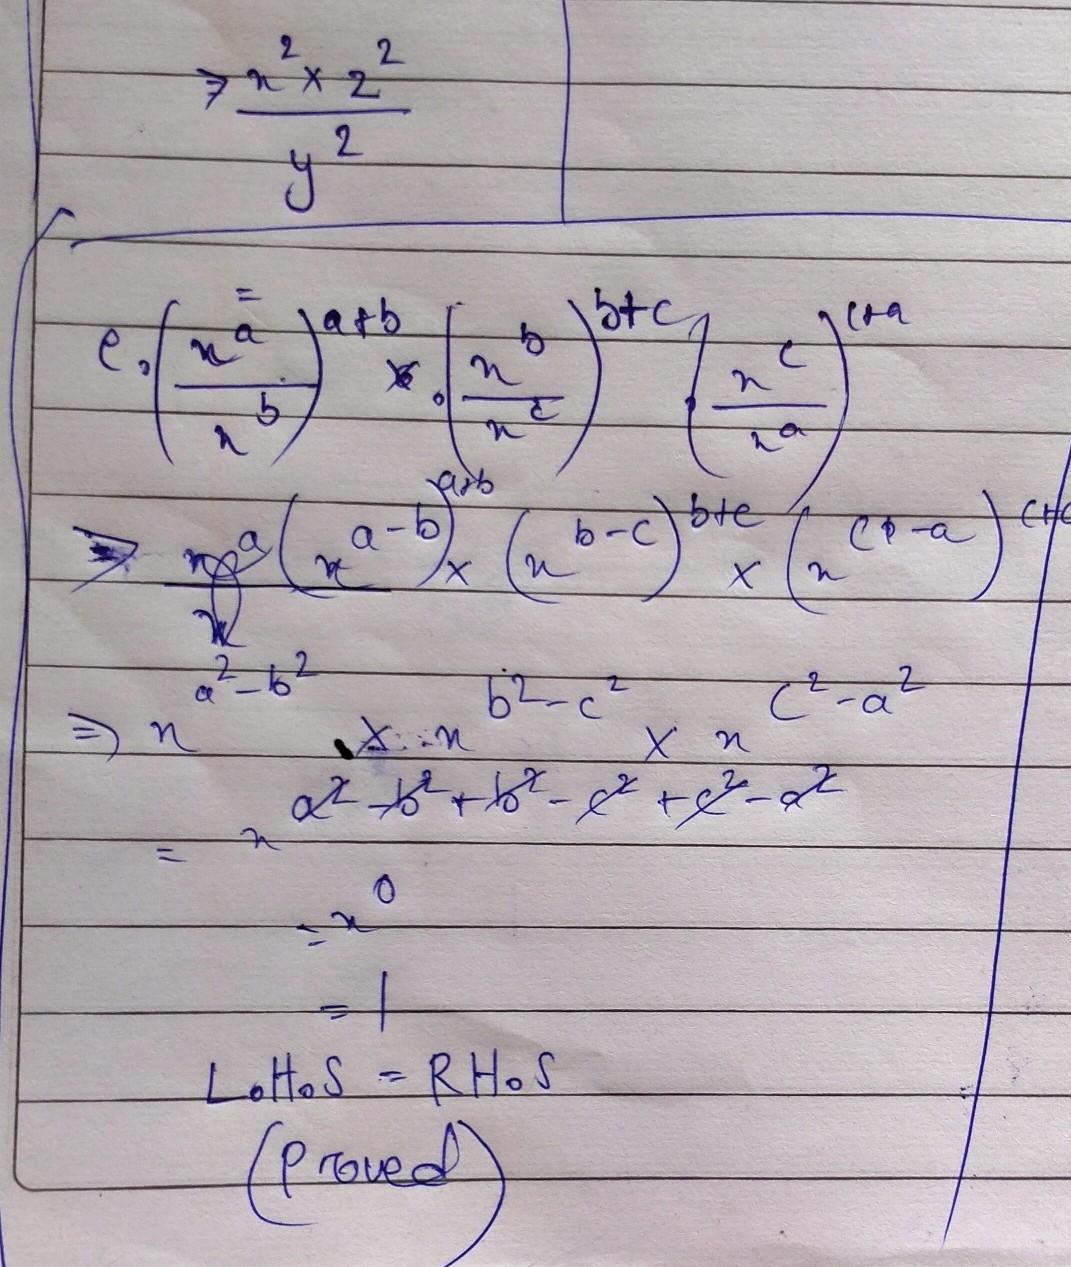 ⇒ x² × z² / y²
e. (x^a / x^b)^(a+b) . (x^b / x^c)^(b+c) . (x^c / x^a)^(c+a)
⇒ (x^(a-b))^(a+b) × (x^(b-c))^(b+c) × (x^(c-a))^(c+a)
⇒ x^(a²-b²) × x^(b²-c²) × x^(c²-a²)
= x^(a²-b²+b²-c²+c²-a²)
= x^0
= 1
L.H.S = RH.S
(Proved)